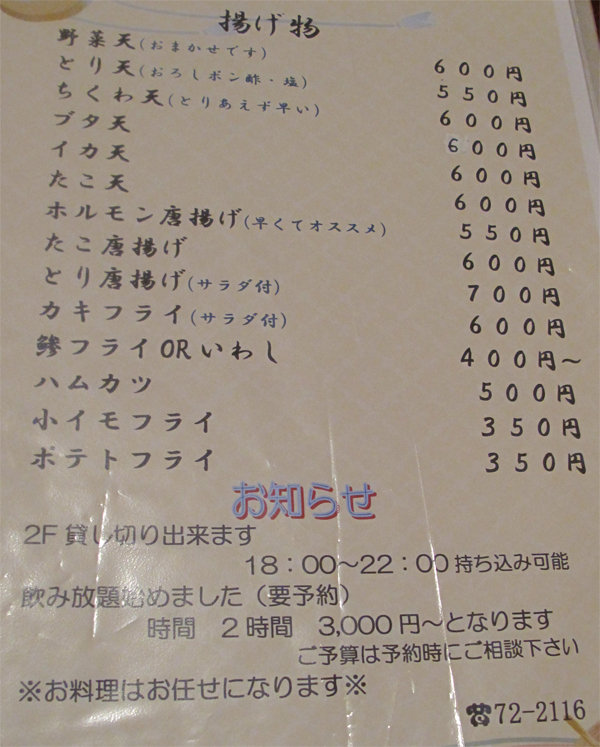 揚げ物
野菜天(おまかせです) 600円
とり天(おろしポン酢・塩) 550円
ちくわ天(とりあえず早い) 600円
ブタ天 600円
イカ天 600円
たこ天 600円
ホルモン唐揚げ(早くてオススメ) 550円
たこ唐揚げ 600円
とり唐揚げ(サラダ付) 700円
カキフライ(サラダ付) 600円
鯵フライORいわし 400円～
ハムカツ 500円
小イモフライ 350円
ポテトフライ 350円
お知らせ
2F貸し切り出来ます
18：00～22：00持ち込み可能
飲み放題始めました（要予約）
時間 2時間 3,000円～となります
ご予算は予約時にご相談下さい
※お料理はお任せになります※
☎72-2116